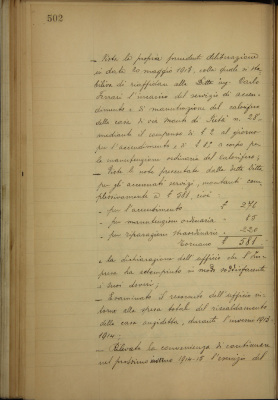 502
- Vista la propria precedente deliberazione
in data 20 maggio 1913, colla quale si sta-
biliva di riaffidare alla Ditta Ing. Carlo
Ferrari l'incarico del servizio di accen-
dimento e di manutenzione del calorifero
della casa di via Monte di Pietà N. 28,
mediante il compenso di £ 2 al giorno
per l'accendimento, e di £ 85 a corpo per
la manutenzione ordinaria del calorifero;
- Viste le note presentate dalla detta Ditta
per gli accennati servizi, montanti com-
plessivamente a £ 581, cioè:
- per l'accendimento £ 276
- per manutenzione ordinaria " 85
- per riparazioni straordinarie " 220
Tornano £ 581
- la dichiarazione dell'ufficio che l'Im-
presa ha adempiuto in modo
ai suoi doveri;
- Esaminato il resoconto dell'ufficio in-
torno alla spesa totale del riscaldamento
della casa anzidetta, durante l'inverno 1913-
1914
- Rilevata la convenienza di continuare
nel prossimo inverno 1914-15 l'esercizio del